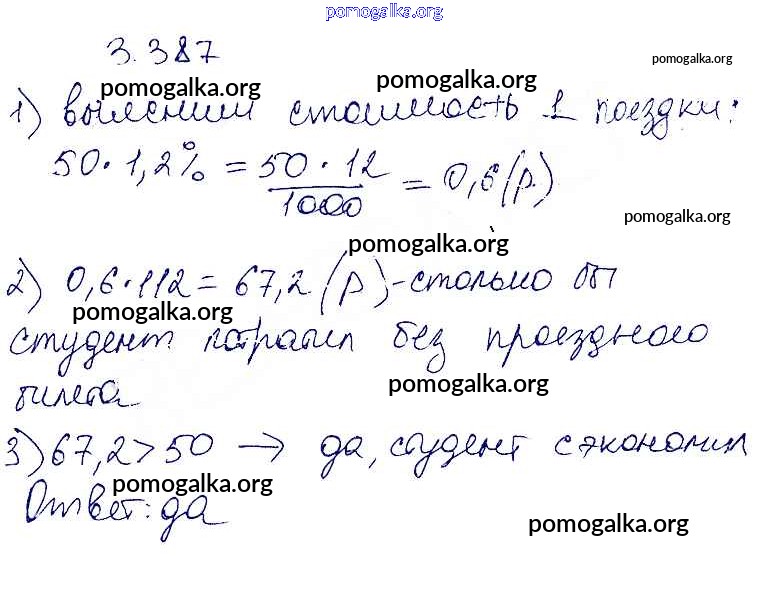 pomogalka.org
3.387
pomogalka.org
pomogalka.org
pomogalka.org
1) выясним стоимость 1 поездки:
50 · 1,2% = 50 · 12 / 1000 = 0,6 (р.)
pomogalka.org
pomogalka.org
2) 0,6 · 112 = 67,2 (р) - столько бы
pomogalka.org
студент потратил без проездного
билета
pomogalka.org
3) 67,2 > 50 → да, студент сэкономил
pomogalka.org
Ответ: да
pomogalka.org